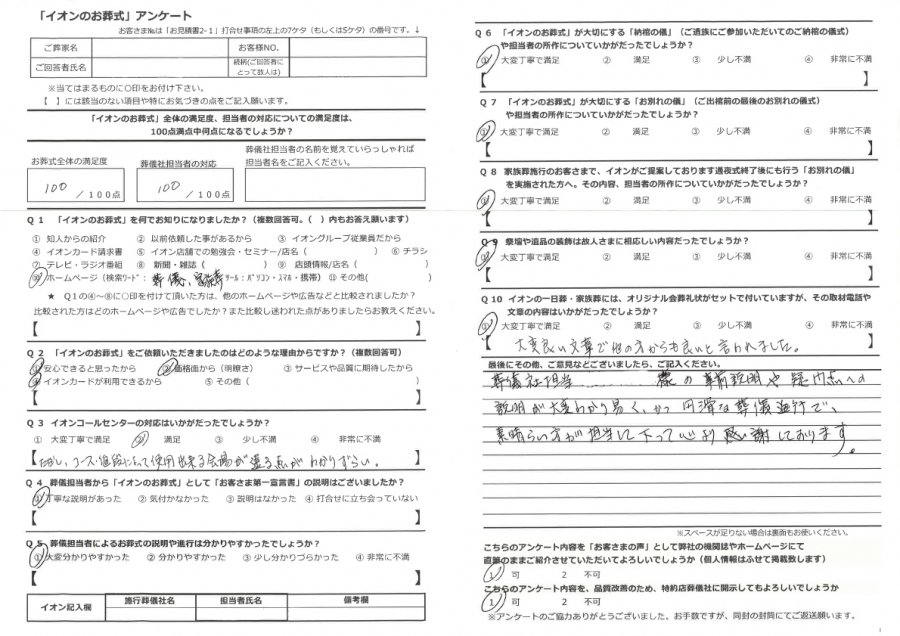 「イオンのお葬式」アンケート
お客さま№は「お見積書2-1」打合せ事項の左上の7ケタ（もしくは5ケタ）の番号です。↓
ご葬家名 お客様NO.
ご回答者氏名 続柄(ご回答者にとって故人は)
※当てはまるものに○印をお付け下さい。
【 】には該当のない項目や特にお気づきの点をご記入願います。
「イオンのお葬式」全体の満足度、担当者の対応についての満足度は、
100点満点中何点になるでしょうか？
お葬式全体の満足度 葬儀社担当者の対応 葬儀社担当者の名前を覚えていらっしゃれば
担当者名をご記入ください。
100 /100点 100 /100点
Q１ 「イオンのお葬式」を何でお知りになりましたか？（複数回答可。( ）内もお答え願います）
① 知人からの紹介 ② 以前依頼した事があるから ③ イオングループ従業員だから
④ イオンカード請求書 ⑤ イオン店舗での勉強会・セミナー/店名（ ） ⑥ チラシ
⑦ テレビ・ラジオ番組 ⑧ 新聞・雑誌（ ） ⑨ 店頭情報/店名（ ）
⑩ ホームページ（検索ワード： 葬儀、家族葬 ツール：パソコン・スマホ・携帯）⑪ その他( )
★ Q1の④～⑧に○印を付けて頂いた方は、他のホームページや広告などと比較されましたか？
比較された方はどのホームページや広告でしたか？また比較し迷われた点がありましたらお教えください。
【 】
Q２ 「イオンのお葬式」をご依頼いただきましたのはどのような理由からですか？（複数回答可）
①安心できると思ったから ②価格面から（明瞭さ） ③ サービスや品質に期待したから
④イオンカードが利用できるから ⑤ その他（ ）
【 】
Q３ イオンコールセンターの対応はいかがだったでしょうか？
① 大変丁寧で満足 ② 満足 ③ 少し不満 ④ 非常に不満
【ただし、コース・値段によって使用出来る会場が違う点がわかりずらい。】
Q４ 葬儀担当者から「イオンのお葬式」として「お客さま第一宣言書」の説明はございましたか？
①丁寧な説明があった ② 気付かなかった ③ 説明はなかった ④ 打合せに立ち会っていない
【 】
Q５ 葬儀担当者によるお葬式の説明や進行は分かりやすかったでしょうか？
①大変分かりやすかった ② 分かりやすかった ③ 少し分かりづらかった ④ 非常に不満
【 】
イオン記入欄 施行葬儀社名 担当者氏名 備考欄
Q６ 「イオンのお葬式」が大切にする「納棺の儀」（ご遺族にご参加いただいてのご納棺の儀式）
や担当者の所作についていかがだったでしょうか？
① 大変丁寧で満足 ② 満足 ③ 少し不満 ④ 非常に不満
【 】
Q７ 「イオンのお葬式」が大切にする「お別れの儀」（ご出棺前の最後のお別れの儀式）
や担当者の所作についていかがだったでしょうか？
① 大変丁寧で満足 ② 満足 ③ 少し不満 ④ 非常に不満
【 】
Q８ 家族葬施行のお客さまで、イオンがご提案しております通夜式終了後にも行う「お別れの儀」
を実施された方へ。その内容、担当者の所作についていかがだったでしょうか？
① 大変丁寧で満足 ② 満足 ③ 少し不満 ④ 非常に不満
【 】
Q９ 祭壇や遺品の装飾は故人さまに相応しい内容だったでしょうか？
① 大変丁寧で満足 ② 満足 ③ 少し不満 ④ 非常に不満
【 】
Q10 イオンの一日葬・家族葬には、オリジナル会葬礼状がセットで付いていますが、その取材電話や
文章の内容はいかがだったでしょうか？
① 大変丁寧で満足 ② 満足 ③ 少し不満 ④ 非常に不満
【 大変良い文章で他の方からも良いと言われました。 】
最後にその他、ご意見などございましたら、ご記入ください。
葬儀社担当 様の事前説明や疑問点への
説明が大変わかり易く、かつ円滑な葬儀進行で、
素晴らしい方が担当に下って心より感謝しております。
※スペースが足りない場合は裏面もお使いください。
こちらのアンケート内容を「お客さまの声」として弊社の機関誌やホームページにて
直筆のままご紹介させていただいてよろしいでしょうか（個人情報はふせて掲載致します）
1 可 2 不可
こちらのアンケート内容を、品質改善のため、特約店葬儀社に開示してもよろしいでしょうか
1 可 2 不可
※アンケートのご協力ありがとうございました。お手数ですが、同封の封筒にてご返送願います。